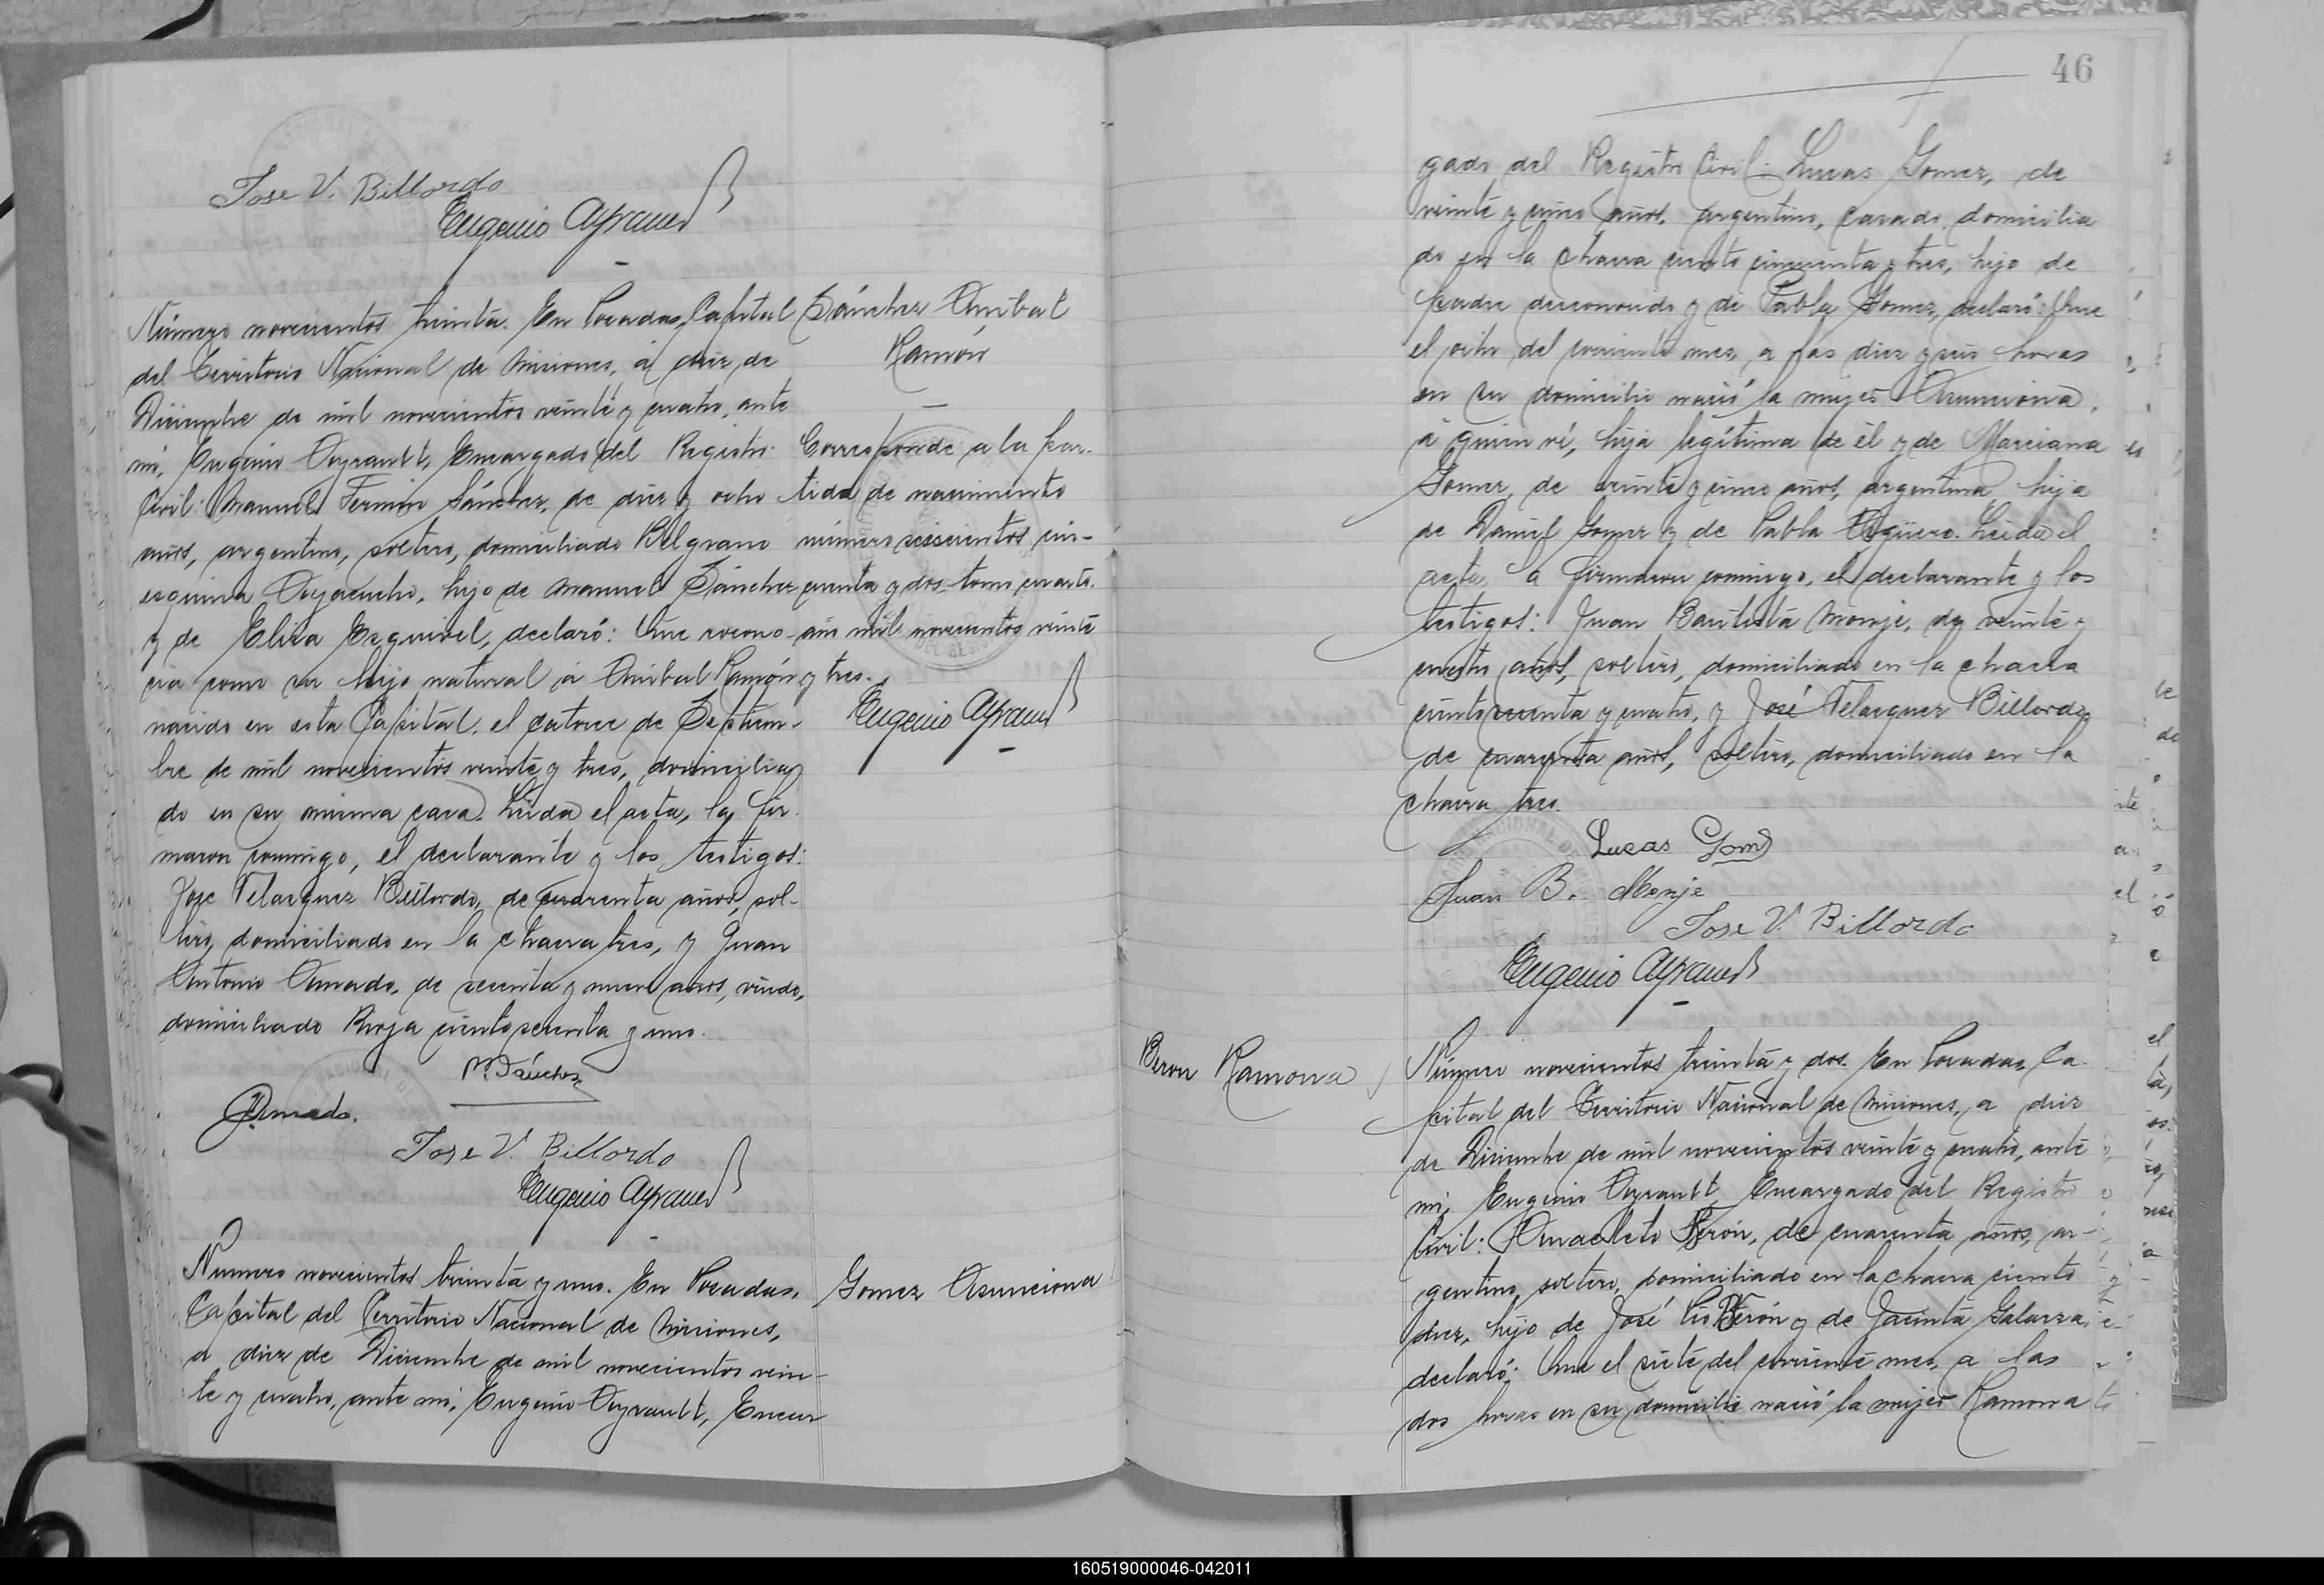 Jose V. Billordo
Eugenio Ayrault
Número novecientos treinta. En Posadas, Capital
del Territorio Nacional de Misiones, á diez de
Diciembre de mil novecientos veinte y cuatro, ante
mí, Eugenio Ayrault, Encargado del Registro
Civil: Manuel Fermin Sánchez, de diez y ocho
años, argentino, soltero, domiciliado Belgrano
esquina Ayacucho, hijo de Manuel Sánchez
y de Elisa Esquivel, declaró: Que recono-
cía como su hijo natural á Anibal Ramón
nacido en esta Capital, el catorce de Septiem-
bre de mil novecientos veinte y tres, domicilia
do en su misma casa. Leida el acta, la fir-
maron conmigo, el declarante y los testigos:
Jose Velazquez Billordo, de cuarenta años, sol-
tero, domiciliado en la chacra tres, y Juan
Antonio Amado, de sesenta y nueve años, viudo,
domiciliado Rioja ciento sesenta y uno.
M. Sánchez
Amado.
Jose V. Billordo
Eugenio Ayrault
Número novecientos treinta y uno. En Posadas,
Capital del Territorio Nacional de Misiones,
a diez de Diciembre de mil novecientos vein-
te y cuatro, ante mí, Eugenio Ayrault, Encar
Sánchez Anibal
Ramón
Corresponde a la par-
tida de nacimiento
número seiscientos cin-
cuenta y dos tomo cuarto
año mil novecientos veinte
y tres.
Eugenio Ayrault
Gomez Asunciona
46
gado del Registro Civil: Lucas Gomez, de
veinte y cinco años, argentino, casado, domicilia
do en la chacra ciento cincuenta y tres, hijo de
padre desconocido y de Pabla Gomez, declaró: Que
el ocho del corriente mes, a las diez y seis horas
en su domicilio nació la mujer Asunciona,
á quien ví, hija legítima de él y de Marciana
Gomez, de veinte y cinco años, argentina, hija
de Daniel Gomez y de Pabla Agüero. Leida el
acta, la firmaron conmigo, el declarante y los
testigos: Juan Bautista Monje, de veinte y
cuatro años, soltero, domiciliado en la chacra
ciento y cuatro, y José Velazquez Billordo,
de cuarenta años, soltero, domiciliado en la
chacra tres.
Lucas Gomez
Juan B. Monje
Jose V. Billordo
Eugenio Ayrault
Beron Ramona
Número novecientos treinta y dos. En Posadas, Ca-
pital del Territorio Nacional de Misiones, a diez
de Diciembre de mil novecientos veinte y cuatro, ante
mí, Eugenio Ayrault, Encargado del Registro
Civil: Anacleto Berón, de cuarenta años, ar-
gentino, soltero, domiciliado en la chacra ciento
diez, hijo de José Pío Berón y de Jacinta Galarza,
declaró: Que el siete del corriente mes, a las
dos horas en su domicilio nació la mujer Ramona
160519000046-042011